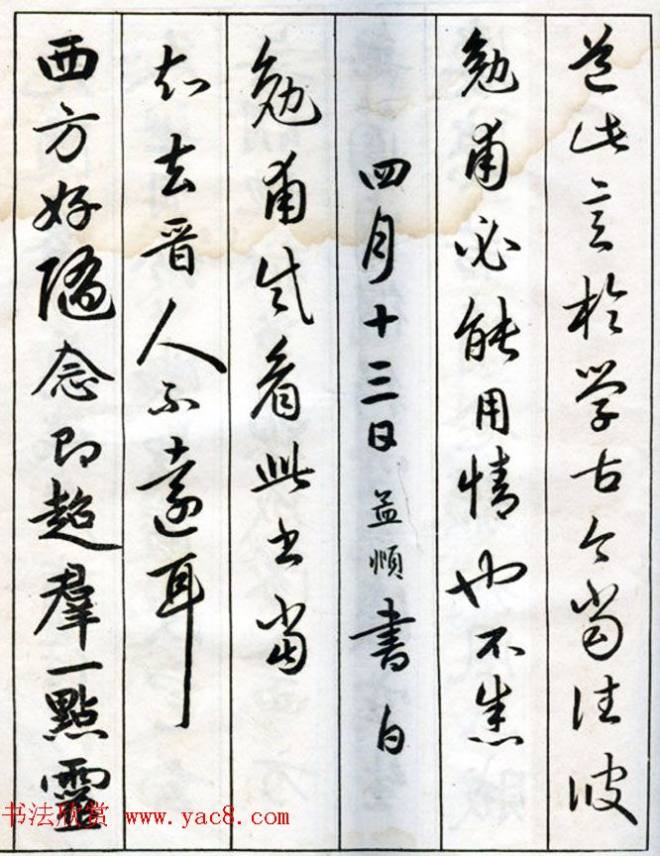 此言於学古今當往彼
勉甫必能用情也不
四月十三日孟頫書白
勉甫試看此书當
知去晋人不遠耳
西方好隨念即超羣一點靈
书法欣赏 www.yac8.com